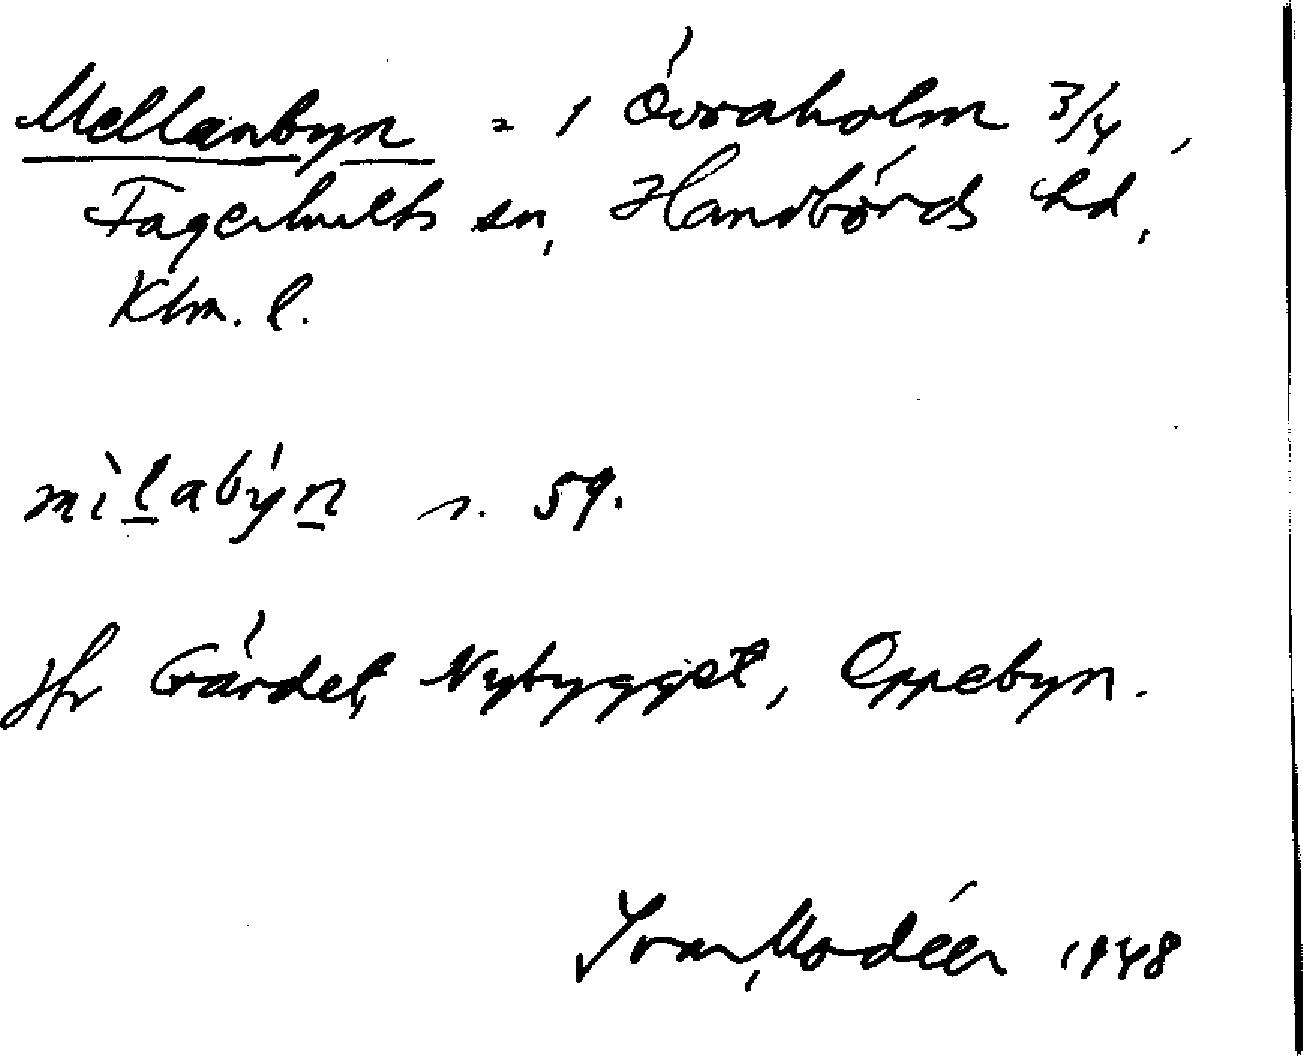 Mellanbyn = 1 Övraholm 3/4,
Fagerhults sn, Handbörds hd,
Klm. l.
mìlabýn s. 59.
Jfr Gärdet, Nybygget, Oppebyn.
Ivar Modéer 1948